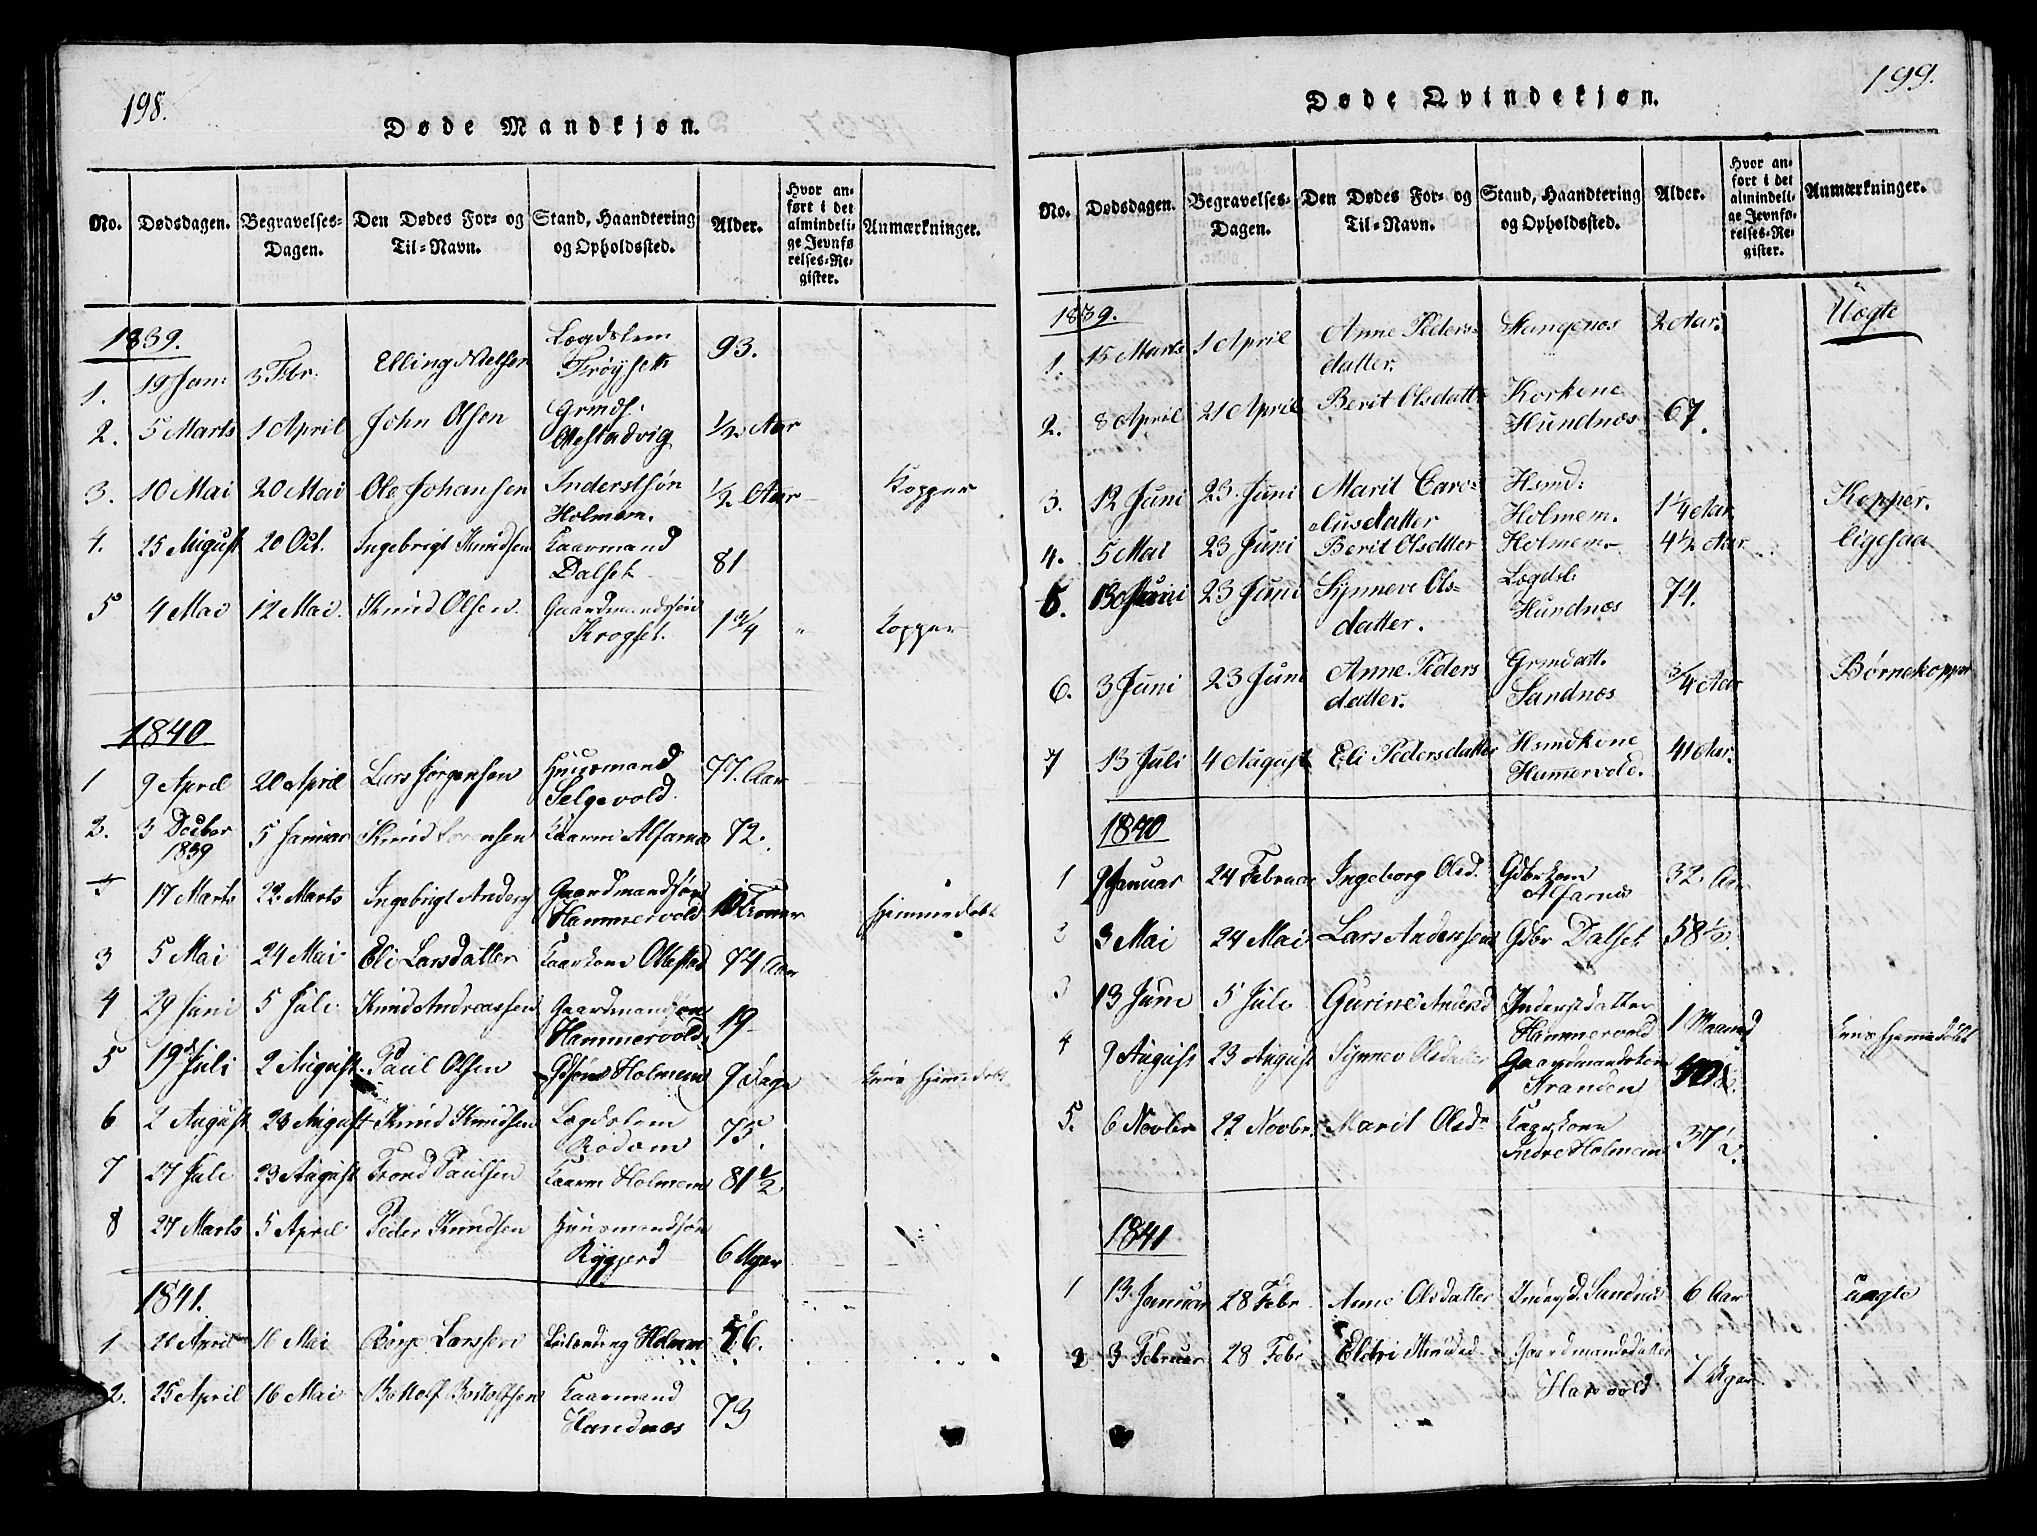 198.
Døde Mandkjøn.
No. Dødsdagen. Begravelses-Dagen. Den Dødes For- og Til-Navn. Stand, Haandtering og Opholdssted. Alder. Hvor anført i det almindelige Jevnførelses-Register. Anmærkninger.
1839.
1. 19 Jan: 3 Febr. Elling Nielsen Lægdslem Frøyset 93.
2. 5 Marts 1 April John Olsen Grmds: Ollestadvig 1/2 Aar
3. 10 Mai 20 Mai Ole Johansen Inderstsøn Holmem. 1/2 Aar Kopper
4. 25 August 20 Oct. Ingebrigt Knudsen Kaarmand Dalset 81
5 4 Mai 12 Mai. Knud Olsen. Gaardmandssøn Krogset. 1 3/4 " Kopper
1840
1 9 April 20 April Lars Jørgensen Huusmand Selgevold. 77. Aar
2. 3 Decber 1839 5 Januar Knud Kaarm Alfarnæs 72.
17 Marts 22 Marts Ingebrigt Anders Gaardmandsøn Hammervold Hjemmedøbt
3 5 Mai 24 Mai Eli Larsdatter Kaarkone Ollestad 74 Aar
4 29 Juni 5 Juli Knud Andreassen Gaardmandsøn Hammervold 19
5 19 Juli 2 August. Paul Olsen Gdsøn Holmem 9 Dage Hjemmedøbt
6 2 August 23 August Knud Knudsen Lægdslem Rødom 75.
7 27 Juli 23 August Trond Paulsen Kaarm Holmem 81 1/2
8 27 Marts 5 April Peder Knudsen Huusmandsøn Ryggjerd 6 Uger
1841.
1 April 16 Mai Børge Larssen Holmem
2. 25 April 16 Mai Bottolf Bottolfsen Kaarmand Handnæs 73
199.
Døde Qvindekjøn.
No. Dødsdagen. Begravelses-Dagen. Den Dødes For- og Til-Navn. Stand, Haandtering og Opholdssted. Alder. Hvor anført i det almindelige Jevnførelses-Register. Anmærkninger.
1839.
1. 15 Marts 1 April Anne Pedersdatter. Mangenæs 2 Aar. Uægte
2. 8 April 21 April Berit Olsdatt Korkone Hundnæs 67.
3. 12 Juni 23 Juni Marit Carolusdatter Hsmd: Holmem. 1 1/4 Aar Kopper.
4. 5 Mai 23 Juni Berit Olsdatter Holmem 4 1/2 Aar ligesaa
5. 13 Juni 23 Juni Synneve Olsdatter. Lægdsl: Hundnæs 74.
6. 3 Juni 23 Juni Anne Pedersdatter. Grmdatt. Sandnæs 3/4 Aar Børnekopper
7 13 Juli 4 August Eli Pedersdatter Hsmdkone Hammervold. 41 Aar.
1840
1 9 Januar 24 Februar Ingeborg Olsd. Gdbrkone Alfarnæs 32. Aar
3 3 Mai 24 Mai Lars Anderssen Gdbr Dalset 58 1/2.
3 13 Juni 5 Juli Gurine Andersd Inderstdatter Hammervold 1 Maaned Hjemmedøbt
4 9 August 23 August Synnev Olsdatter Gaardmandskone Stranden
5. 6 Novber 22 Novbr. Marit Olsd Kaarkone Indre Holmem 37 1/2.
1841
1 13 Januar 28 Febr Anne Olsdatter Inderstd. Sandnæs 6 Aar uægte
2 3 Februar 28 Febr Eldri Knudsd Gaardmandsdatter Harvold 7 Uger